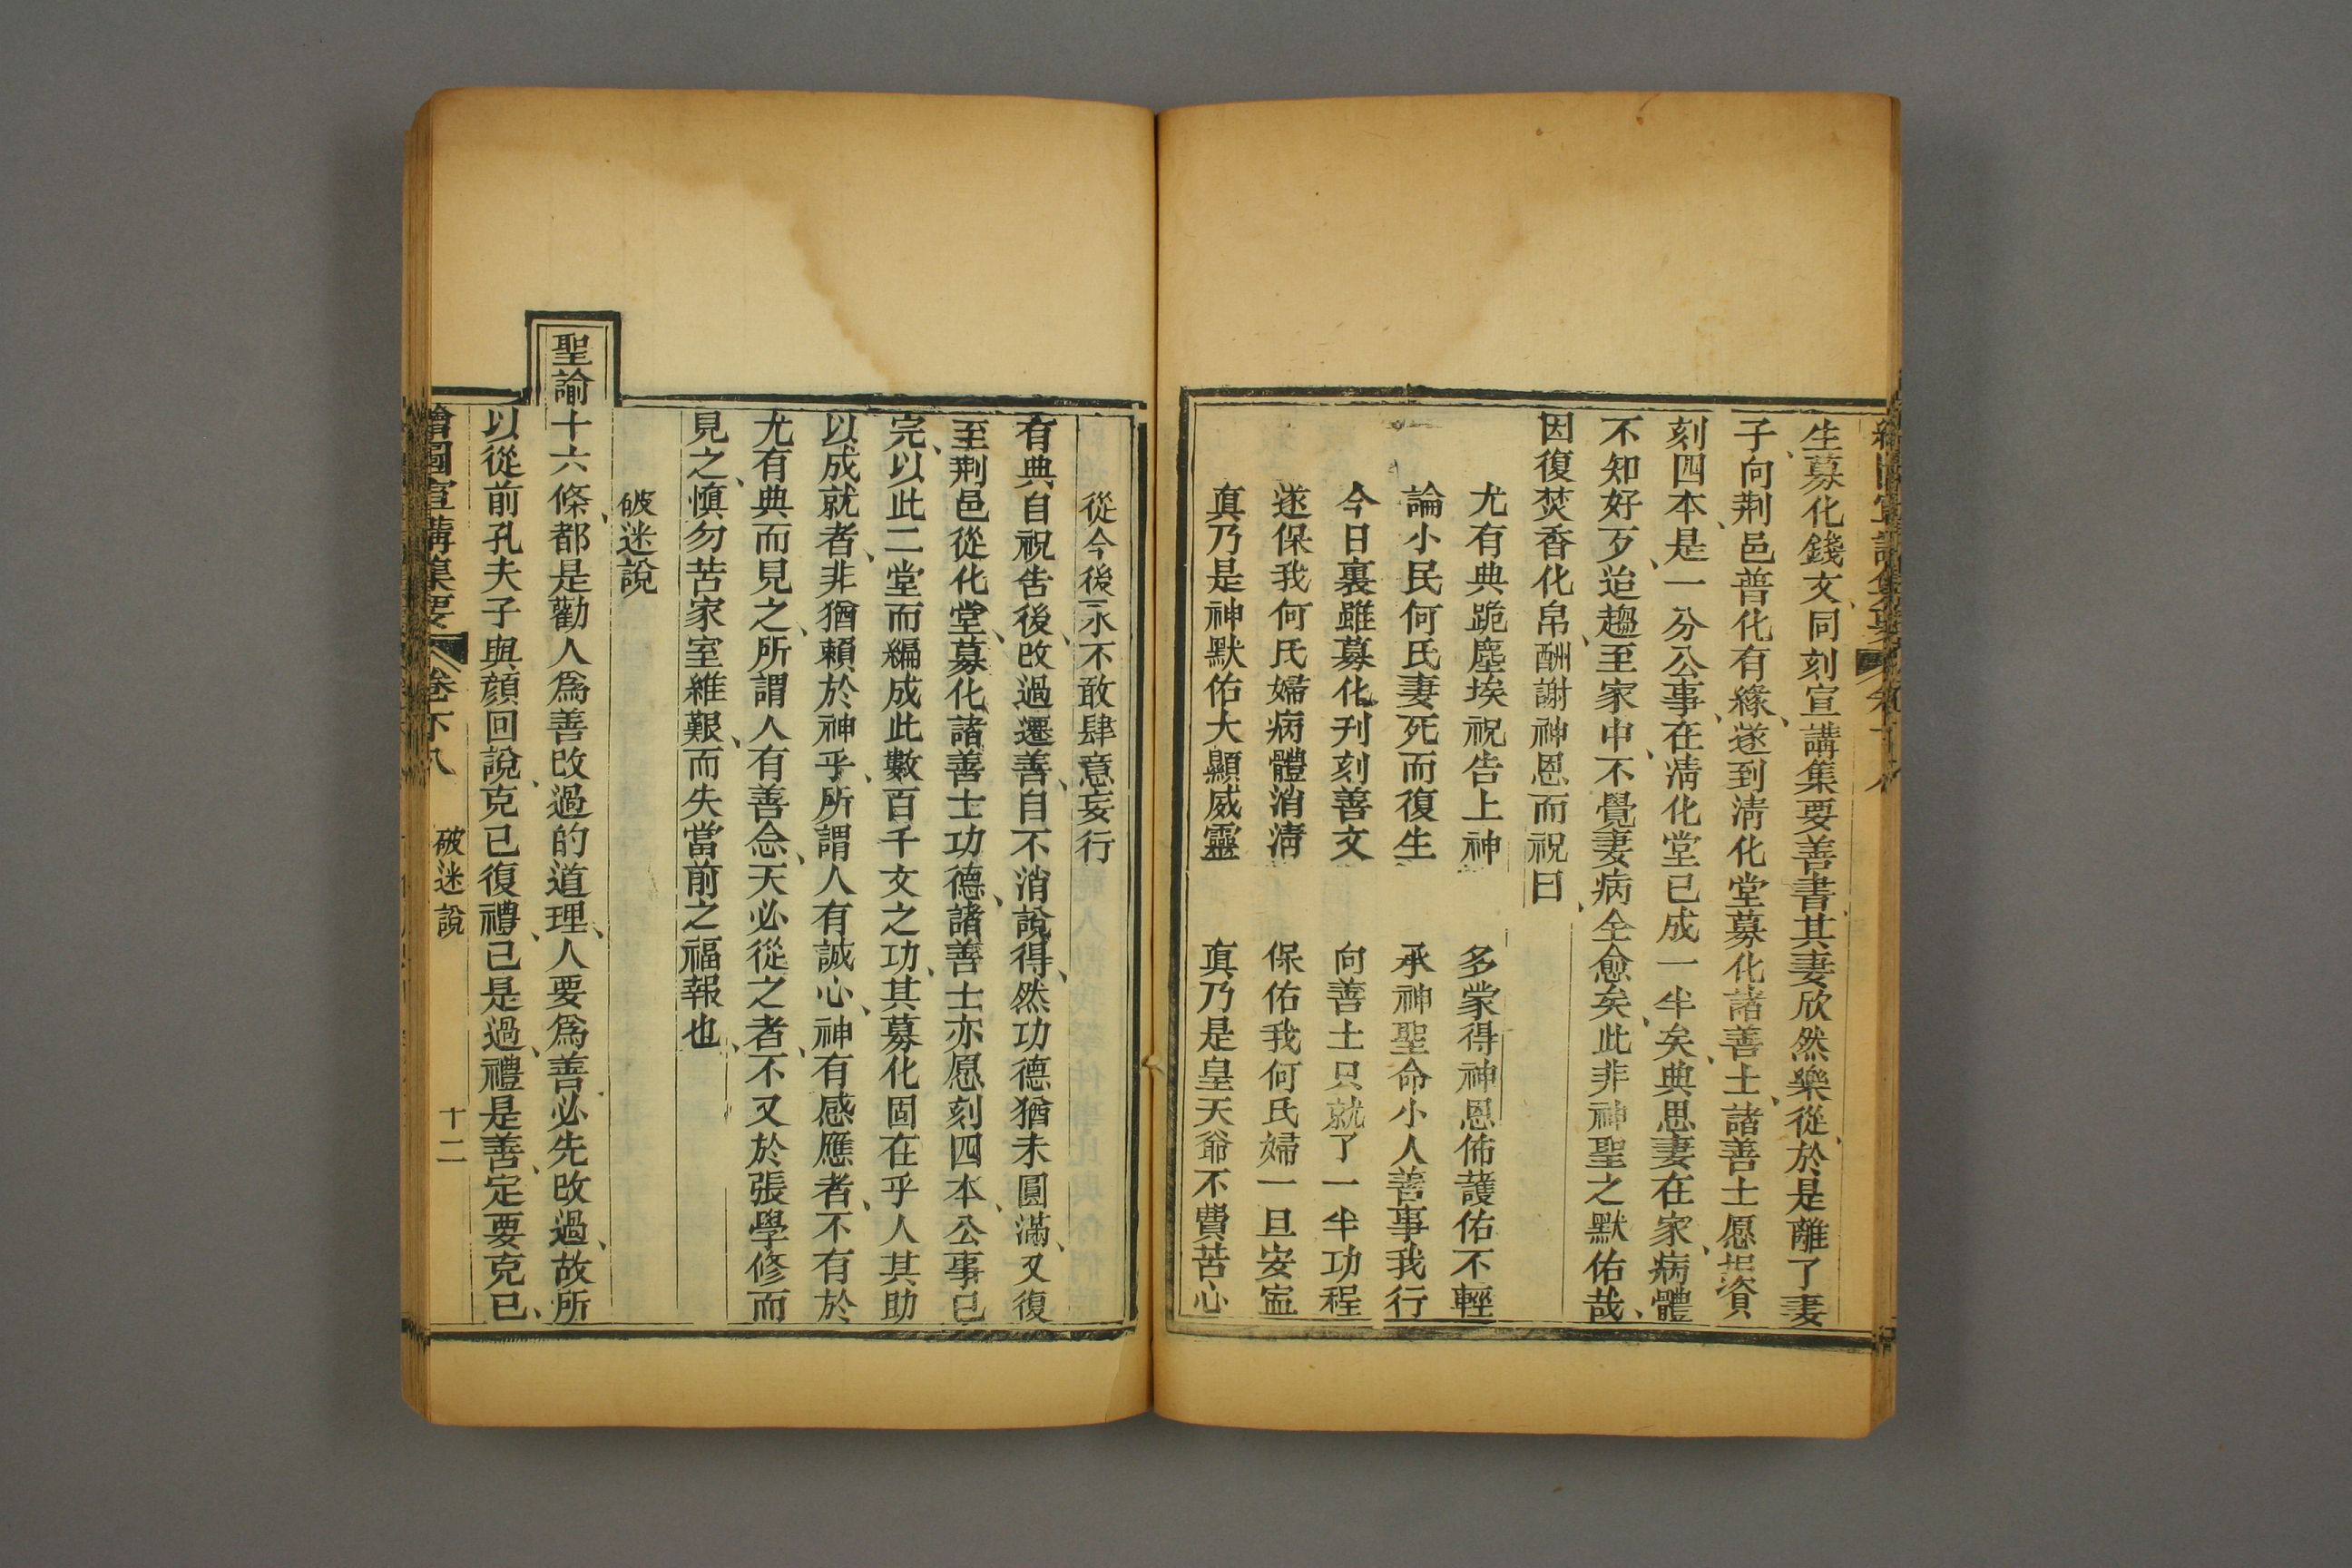 生募化錢文、同刻宣講集要善書、其妻欣然樂從、於是離了妻
子、向荆邑普化有緣、遂到淸化堂募化諸善士、諸善士愿捐資
刻四本、是一分公事、在淸化堂已成一半矣、典思妻在家、病體
不知好歹、迨趨至家中、不覺妻病全愈矣、此非神聖之默佑哉、
因復焚香化帛、酬謝神恩而祝曰、
尤有典跪塵埃祝告上神 多蒙得神恩佈護佑不輕
論小民何氏妻死而復生 承神聖命小人善事我行
今日裏雖募化刋刻善文 向善士只就了一半功程
遂保我何氏婦病體消淸 保佑我何氏婦一旦安寍
眞乃是神默佑大顯威靈 眞乃是皇天爺不費苦心
從今後永不敢肆意妄行
有典自祝告後、改過遷善、自不消說得、然功德猶未圓滿、又復
至荆邑從化堂、募化諸善士功德、諸善士亦愿刻四本、公事已
完、以此二堂而編成此數百千文之功、其募化固在乎人其助
以成就者、非猶賴於神乎、所謂人有誠心、神有感應者、不有於
尤有典而見之、所謂人有善念、天必從之者、不又於張學修而
見之、愼勿苦家室維艱、而失當前之福報也、
破迷說
聖諭十六條、都是勸人爲善改過的道理、人要爲善必先改過、故所
以從前孔夫子與顔回說、克已復禮、已是過、禮是善、定要克已、
繪圖宣講集要 卷下八 破迷說 十二